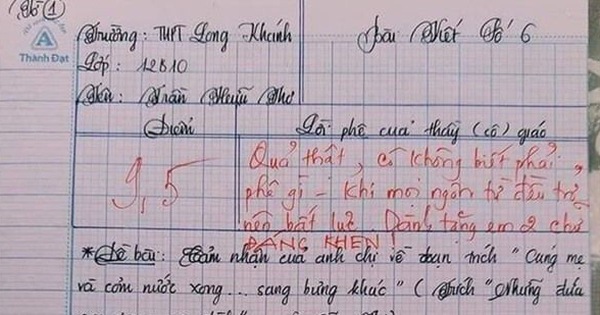 Tờ 1
Thành Đạt
Trường: THPT Long Khánh
Bài Viết Số 6
Lớp: 12B10
Tên: Trần Hữu Thơ
Điểm
Lời phê của thầy (cô) giáo
9,5
Quả thật, cô không biết phải
phê gì - khi mọi ngôn từ đều trở
nên bất lực. Dành tặng em 2 chữ
ĐÁNG KHEN!
*Đề bài: Cảm nhận của anh chị về đoạn trích "Cúng mẹ
và cơm nước xong... sang bưng khác" (Trích "Những đứa